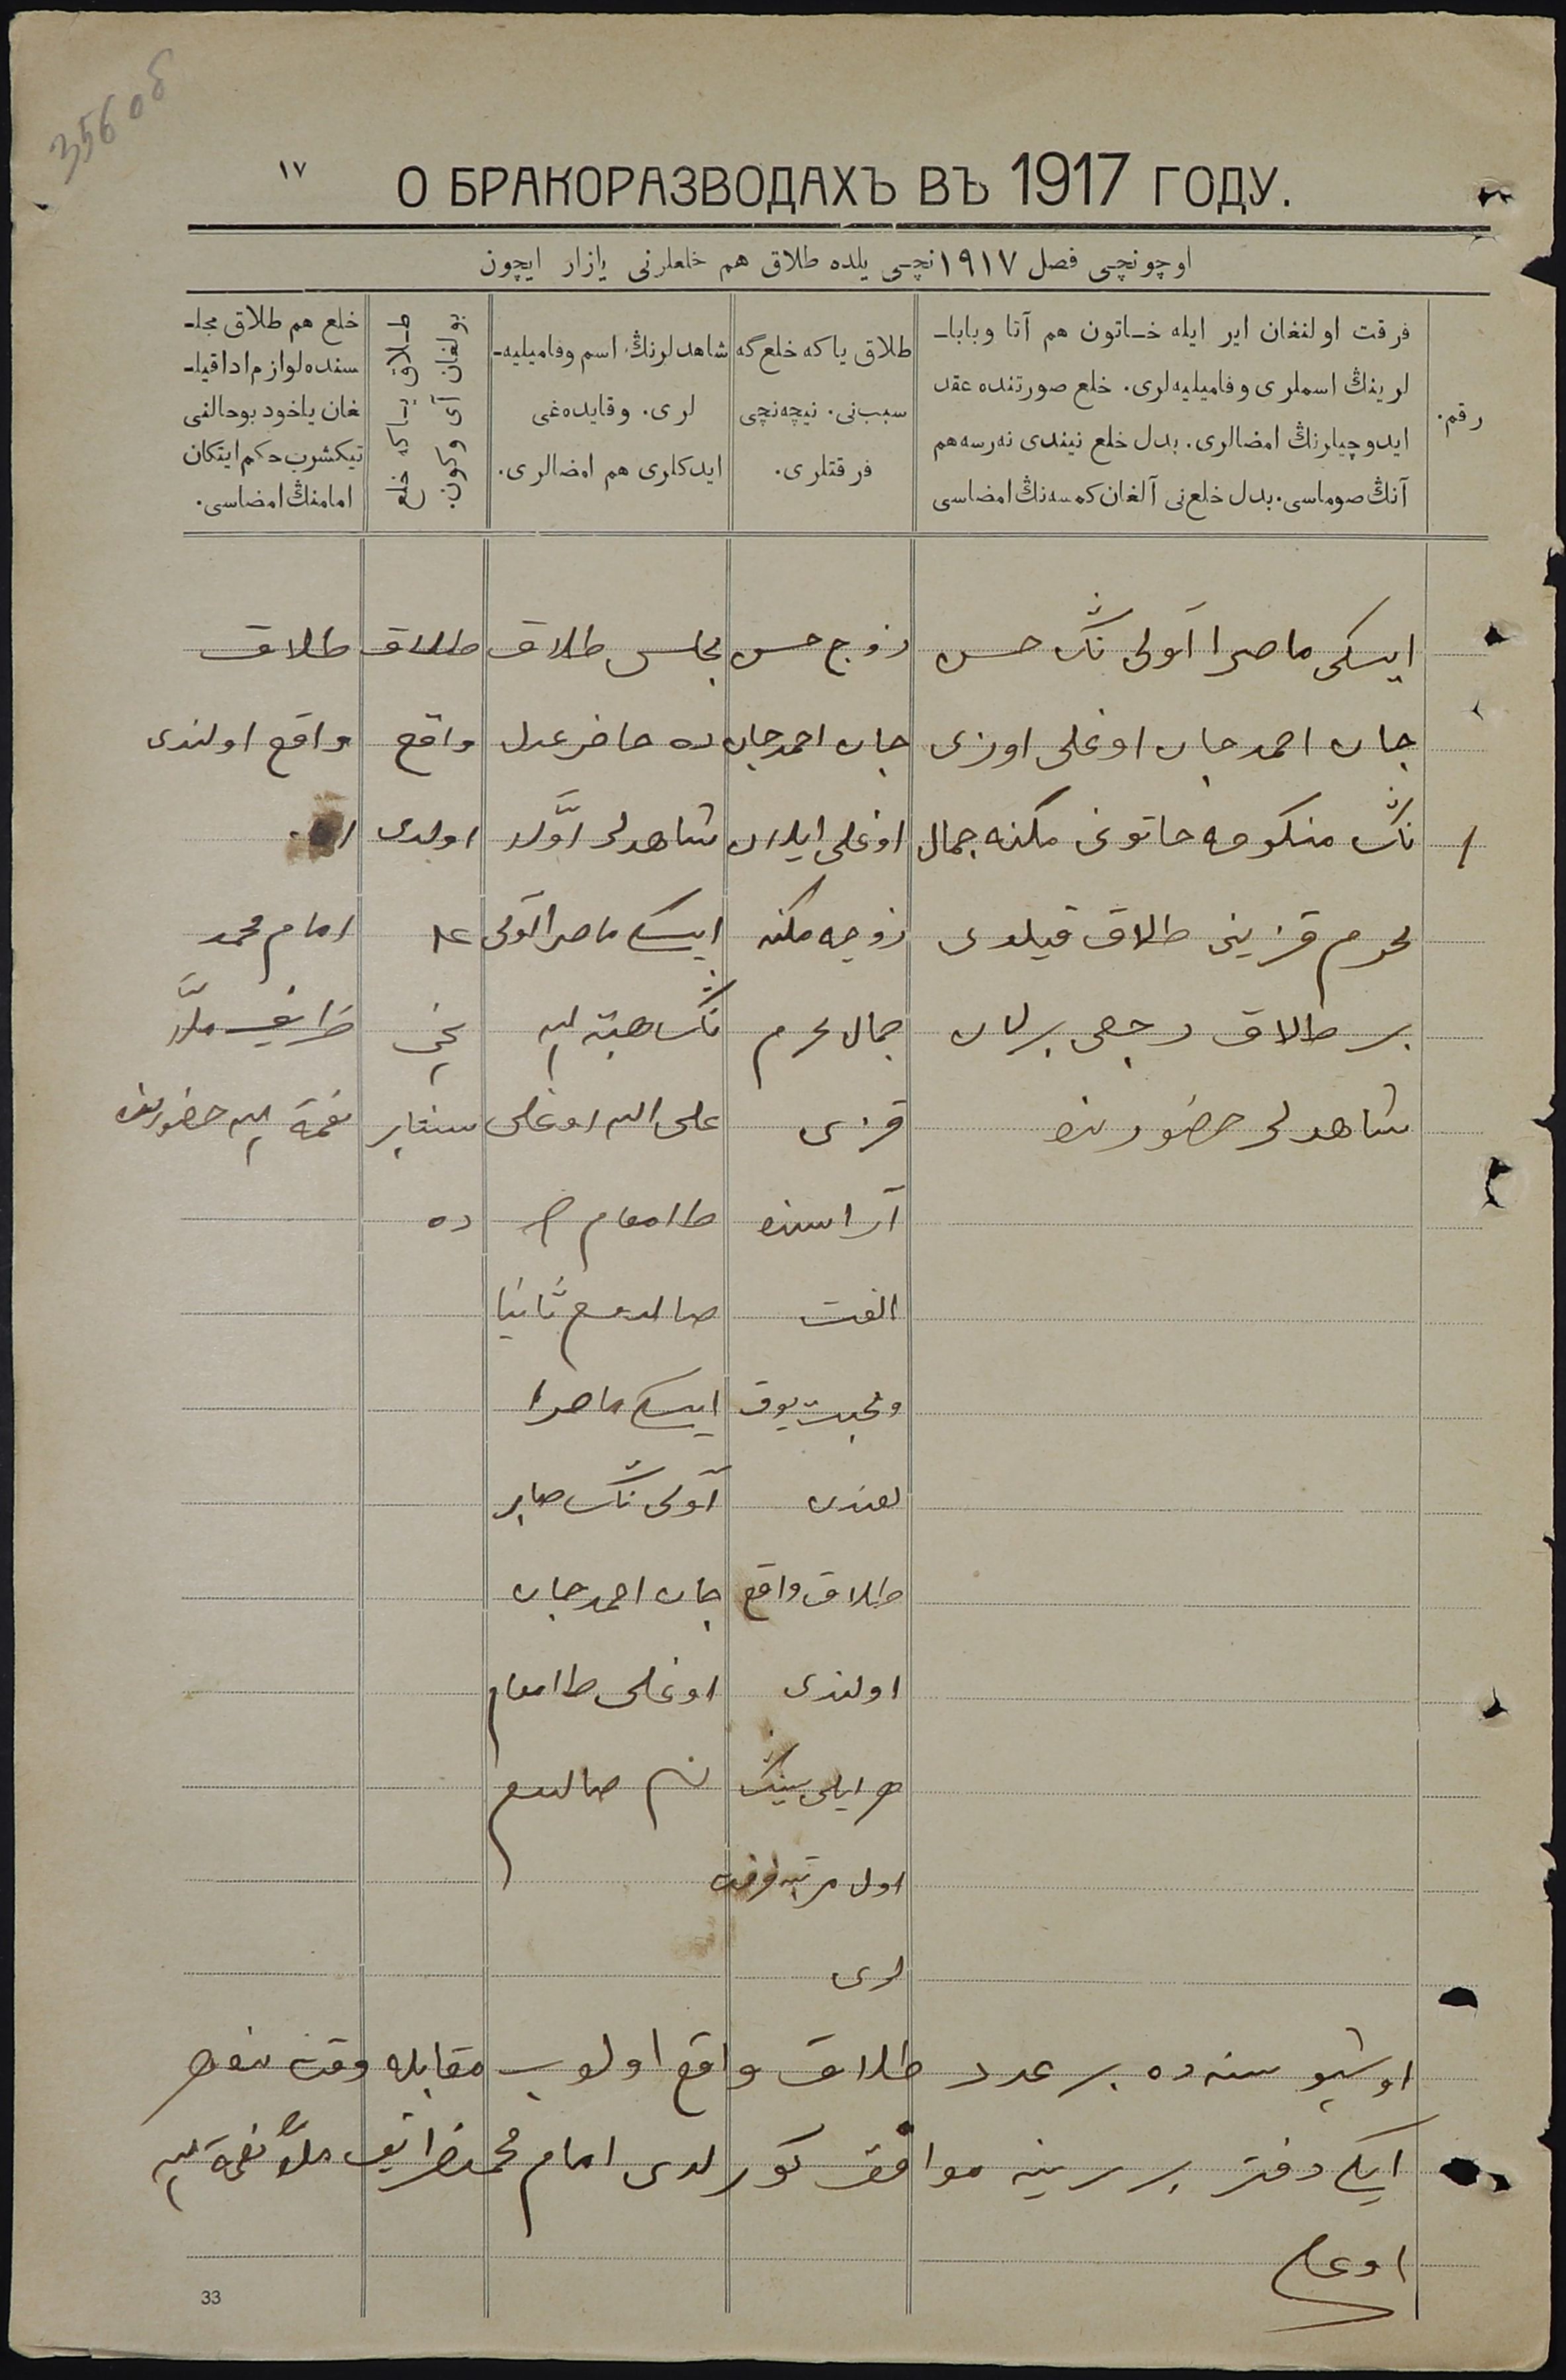 356 об
١٧
О БРАКОРАЗВОДАХЪ ВЪ 1917 ГОДУ.
اوچونچی فصل ١٩١٧نچی یلده طلاق هم خلعلرنی یازار ایچون
رقم.
فرقت اولنغان ایر ایله خاتون هم آتا وبابا-
لرینڭ اسملری وفامیلیه‌لری. خلع صورتنده عقد
ایدوچیلرنڭ امضالری. بدل خلع نیندی نه‌رسه هم
آنڭ صوماسی. بدل خلع‌نی آلغان کمسه‌نڭ امضاسی
طلاق یا که خلع گه
سبب‌نی. نیچه‌نچی
فرقتلری.
شاهدلرنڭ اسم وفامیلیه-
لری. وقایده‌غی
ایدکلری هم امضالری.
طلاق یا که خلع
بولغان آی وکون.
خلع هم طلاق مجل-
سنده لوازم ادا قیل-
غان یاخود بوحالنی
تیکشرب حکم ایتکان
امامنڭ امضاسی.
١
ایسکی ماصرا آولی نڭ حسن
جان احمدجان اوغلی اوزی
نڭ منکوحه خاتونی مکنه جمال
محرم قزینی طلاق قیلدی
بر طلاق رجعی برلان
شاهدلر حضورنده
زوج حسن
جان احمدجان
اوغلی ایلان
زوجه مکنه
جمال محرم
قزی
آراسنده
الفت
ومحبت یوق
طلاق واقع
اولندی
هر ایکی سینڭ
اول مرتبه فرقت
لری
مجلس طلاق
ده حاضر عدل
شاهدلر اوّلا
ایسکی ماصرا آولی
نڭ هبة الله
علی الله اوغلی
ثانیا
ایسکی ماصرا
آولی نڭ صابر
جان احمدجان
اوغلی
طلاق
واقع
اولدی
١٤
نچی
سنتابر
ده
طلاق
واقع اولندی
امام محمد
ظریف ملّا
نعمة الله حضورنده
اوشبو سنه ده بر عدد طلاق واقع اولوب مقابله وقتنده
ایکی دفتر بر برینه موافق کورلدی امام محمدظریف ملّا نعمة الله
اوغلی
33